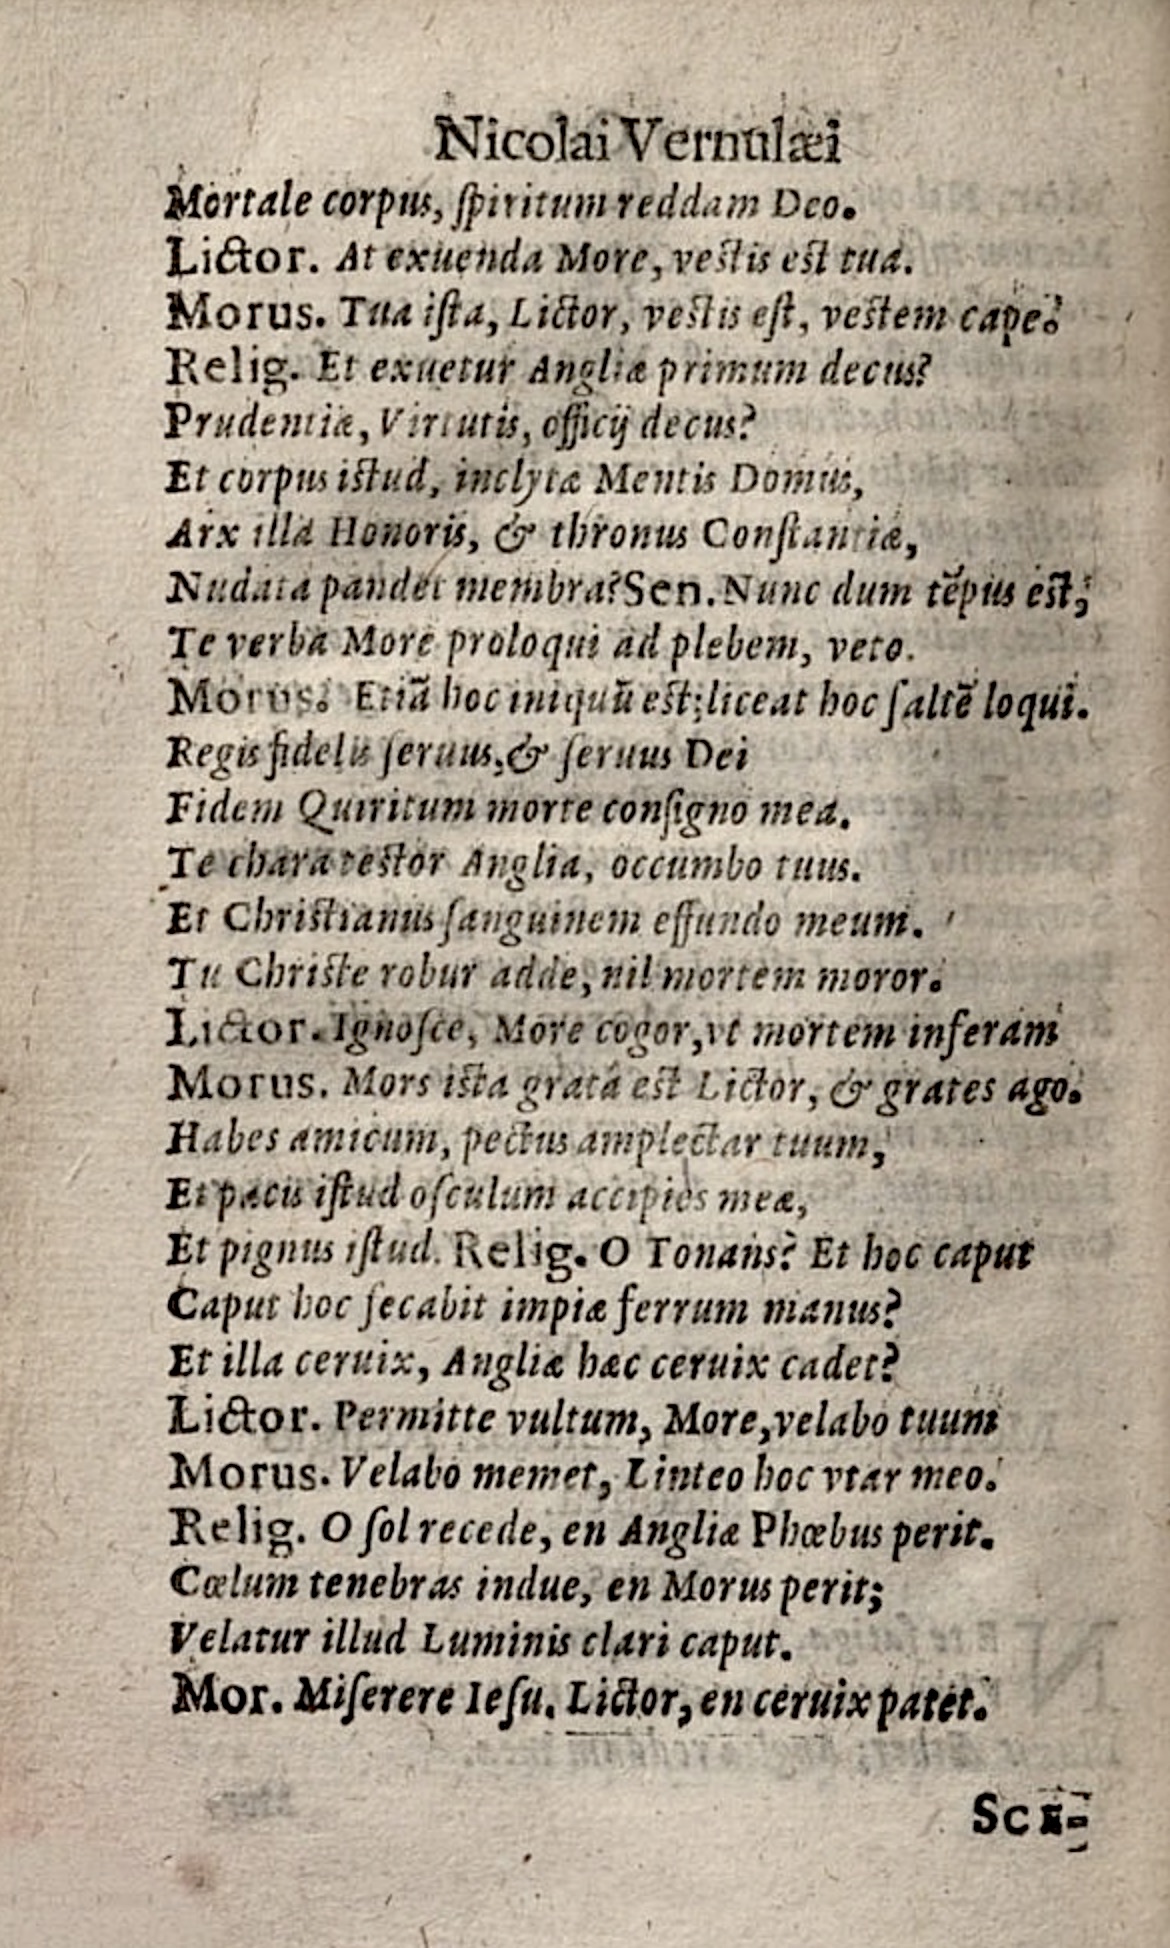 Nicolai Vernulæi
Mortale corpus, ſpiritum reddam Deo.
Lictor. At exuenda More, vestis est tua.
Morus. Tua iſta, Lictor, vestis eſt, vestem cape.
Relig. Et exuetur Angliæ primum decus?
Prudentiæ, Virtutis, officij decus?
Et corpus istud, inclytæ Mentis Domus,
Arx illa Honoris, & thronus Conſtantiæ,
Nudata pandet membra? Sen. Nunc dum tẽpus est;
Te verba More proloqui ad plebem, veto.
Morus. Etiã hoc iniquũ est; liceat hoc ſaltẽ loqui.
Regis fidelis ſeruus, & ſeruus Dei
Fidem Quiritum morte conſigno mea.
Te chara testor Anglia, occumbo tuus.
Et Christianus ſanguinem effundo meum.
Tu Christe robur adde, nil mortem moror.
Lictor. Ignoſce, More cogor, vt mortem inferam
Morus. Mors ista grata est Lictor, & grates ago.
Habes amicum, pectus amplectar tuum,
Et pacis iſtud oſculum accipies meæ,
Et pignus iſtud. Relig. O Tonans? Et hoc caput
Caput hoc ſecabit impiæ ferrum manus?
Et illa ceruix, Angliæ hæc ceruix cadet?
Lictor. Permitte vultum, More, velabo tuum
Morus. Velabo memet, Linteo hoc vtar meo.
Relig. O ſol recede, en Angliæ Phœbus perit.
Cœlum tenebras indue, en Morus perit;
Velatur illud Luminis clari caput.
Mor. Miſerere Ieſu. Lictor, en ceruix patet.
SCE-